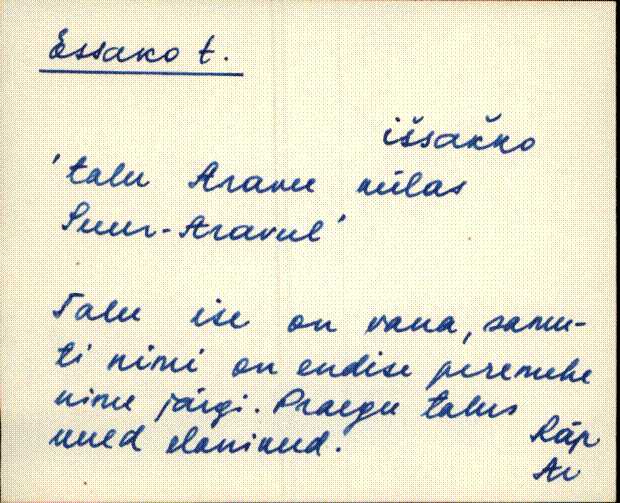 Essako t.
iššak̆ko
'talu Aravu külas
Suur-Aravul'
Talu ise on vana, samu-
ti nimi on endise peremehe
nime järgi. Praegu talus
uued elanikud.
Räp
Ar